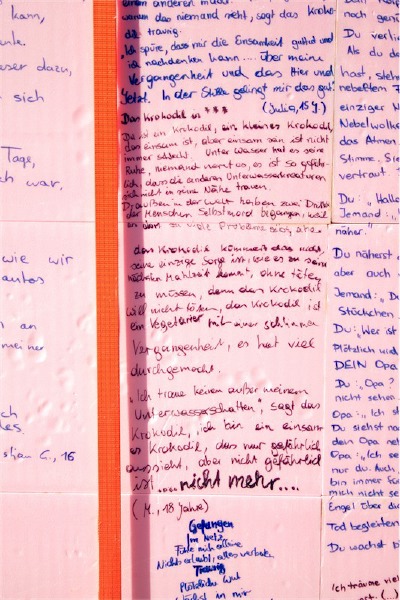 kann,
dazu,
sich
Tage,
ch war.
wie wir
autos
an
meiner
ch
les.
C., 16
einem anderen muss.
warum das niemand sieht, sagt das Kroko-
dil traurig.
"Ich spüre, dass mir die Einsamkeit guttut und
ich nachdenken kann.... über meine
Vergangenheit und das Hier und
Jetzt. In der Stille gelingt mir das gut."
(Julia, 15 J.)
Das Krokodil in ***
Da ist ein Krokodil, ein kleines Krokodil,
das einsam ist, aber einsam sein ist nicht
immer schlecht. Unter Wasser hat es seine
Ruhe, niemand nervt es, es ist so gefähr-
lich, dass die anderen Unterwasserkreaturen
sich nicht in seine Nähe trauen.
Draußen in der Welt haben zwei Drittel
der Menschen Selbstmord begangen, weil
es dort zu viele Probleme gibt, aber
das Krokodil kümmert das nicht,
seine einzige Sorge ist, wie es zu seiner
nächsten Mahlzeit kommt, ohne töten
zu müssen, denn das Krokodil
will nicht töten, das Krokodil ist
ein Vegetarier mit einer schlimmen
Vergangenheit, es hat viel
durchgemacht.
"Ich traue keinem außer meinem
Unterwasserschatten", sagt das
Krokodil, ich bin ein einsam-
es Krokodil, das nur gefährlich
aussieht, aber nicht gefährlich
ist .... nicht mehr....
(M., 18 Jahre)
Gefangen
Im Netz,
Fühle mich alleine
Nichts erlaubt, alles verboten.
Traurig
Plötzliche Wut
wächst in mir
noch
Du
Als du
hast, steh
nebeltem
einziger
Nebelwolke
das Atmen.
Stimme. Sie
vertraut.
Du: "Hallo
Jemand: "
näher."
Du näherst
aber auch
Jemand: "
Stückchen
Du: "Wer ist
Plötzlich wird
DEIN Opa
Du: "Opa?
nicht sehen.
Opa: "Ich
Du siehst
dein Opa
Opa: "Ich
nur du. Auch
bin immer für
mich nicht
Engel über
Tod begleiten
Du wachst
Ich träume
(...)